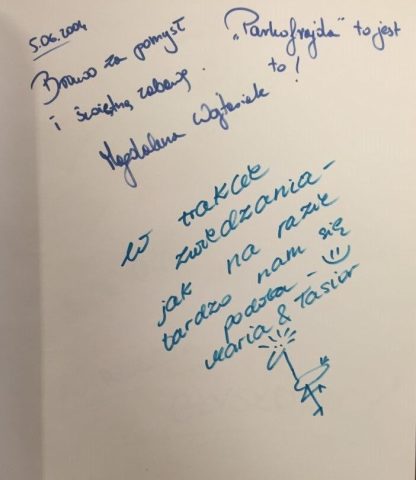 5.06.2004
Brawo za pomysł
i świetną zabawę.
„Parkofrajda" to jest
to!
Magdalena Wojtasiak
w trakcie
zwiedzania –
jak na razie
bardzo nam się
podoba –
Maria & Tasior